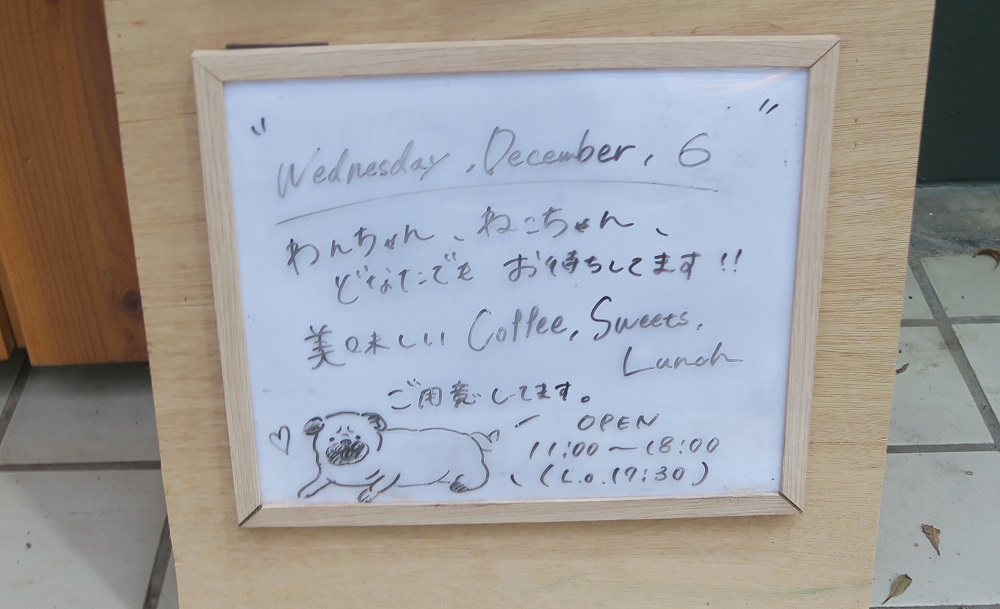 " Wednesday, December, 6 "
わんちゃん、ねこちゃん、
どなたでも お待ちしてます!!
美味しい Coffee, Sweets,
Lunch
ご用意してます。
OPEN
11:00〜18:00
(L.o.17:30)